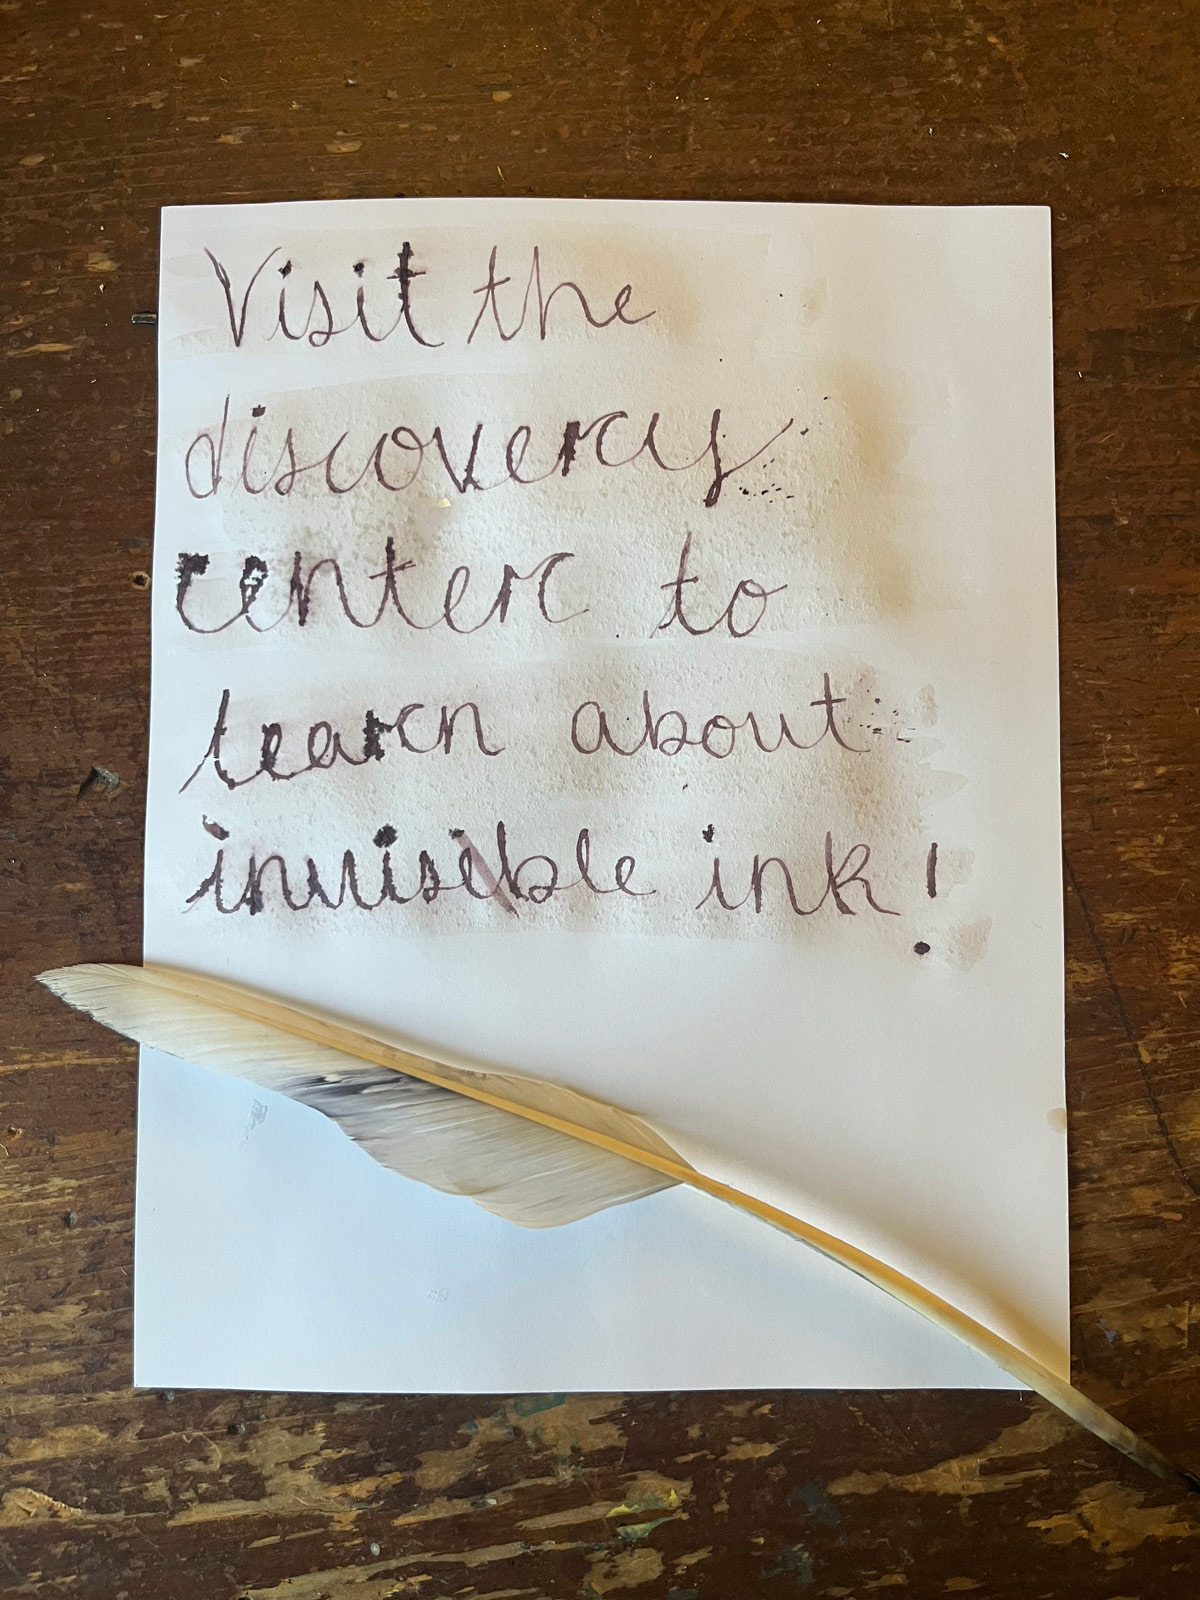 Visit the
discovery
center to
learn about
invisible ink!